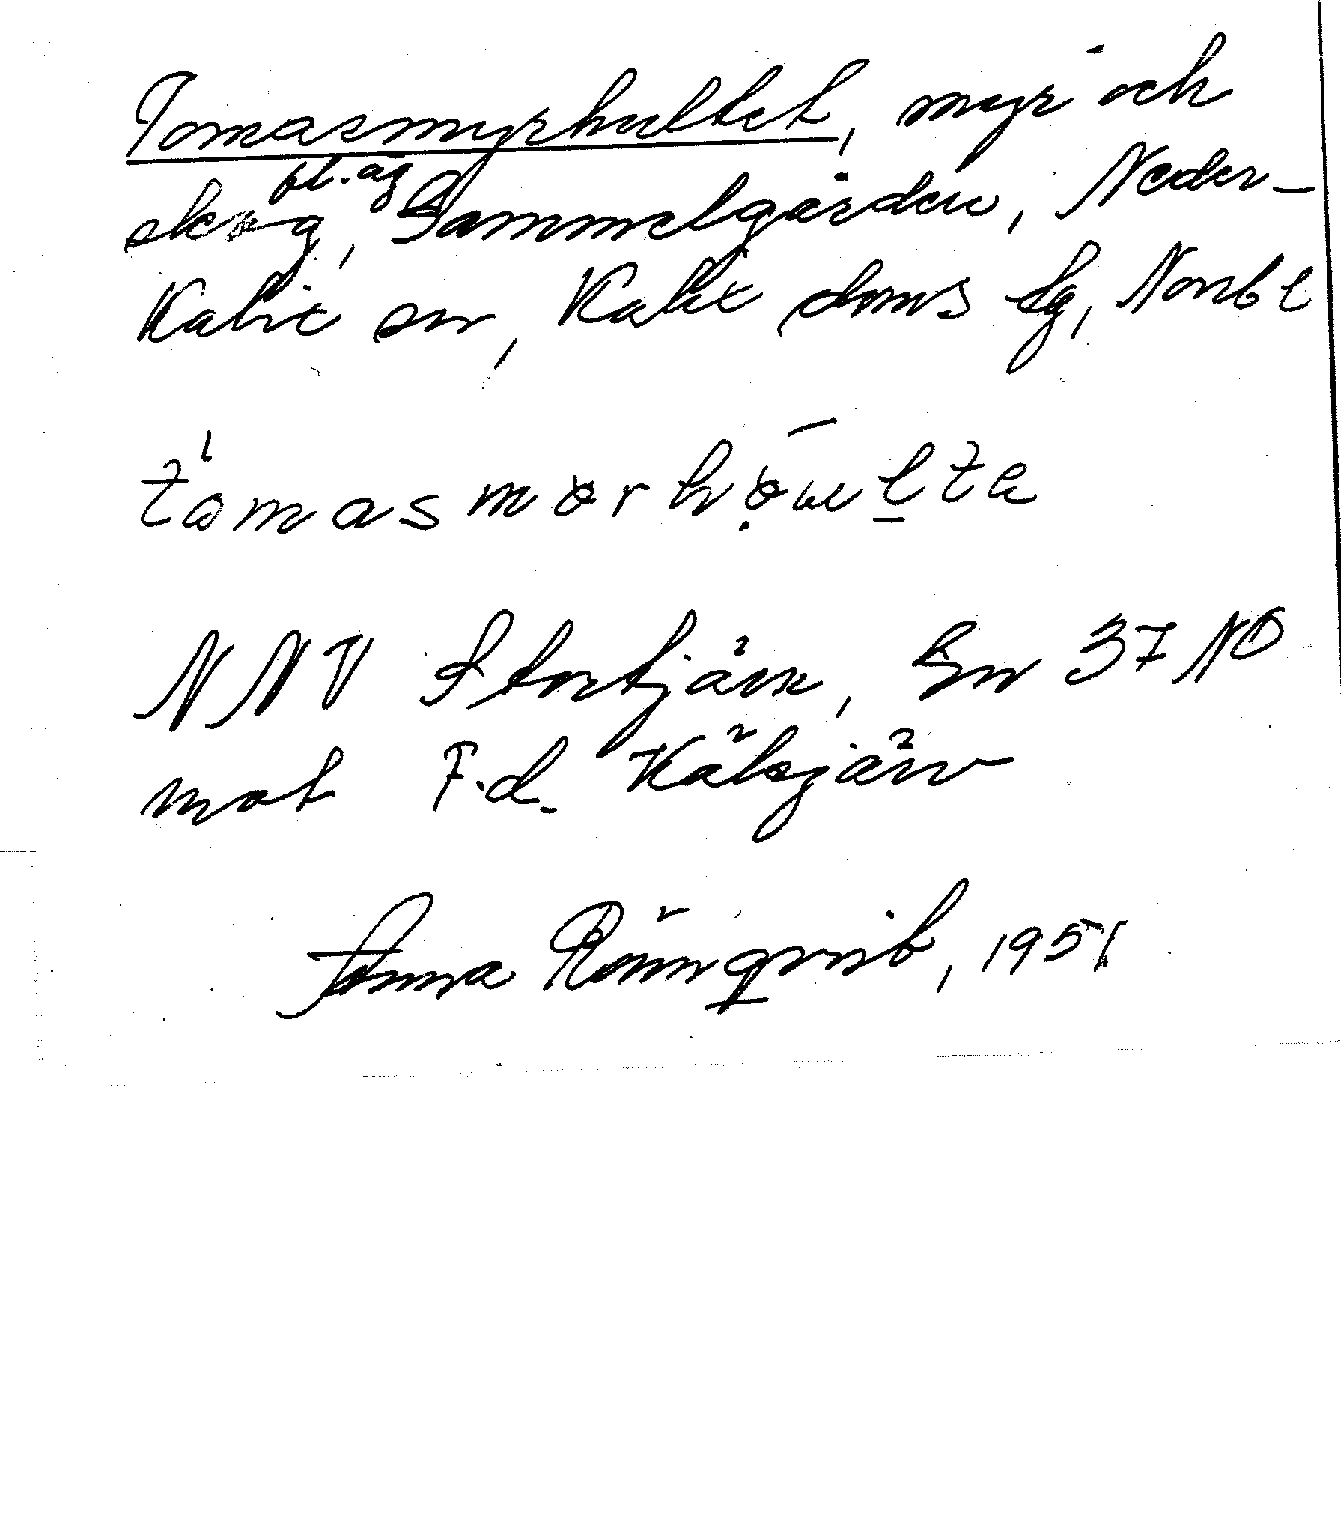 Tomasmyrhultet, myr och
fl. äg
skog, Gammelgården, Neder-
Kalix sn, Kalix doms sg, Norrb l
NNV Stortjärn, Gn 37 NO
mot F.d. Kälsjärv
Anna Rönnqvist, 1951